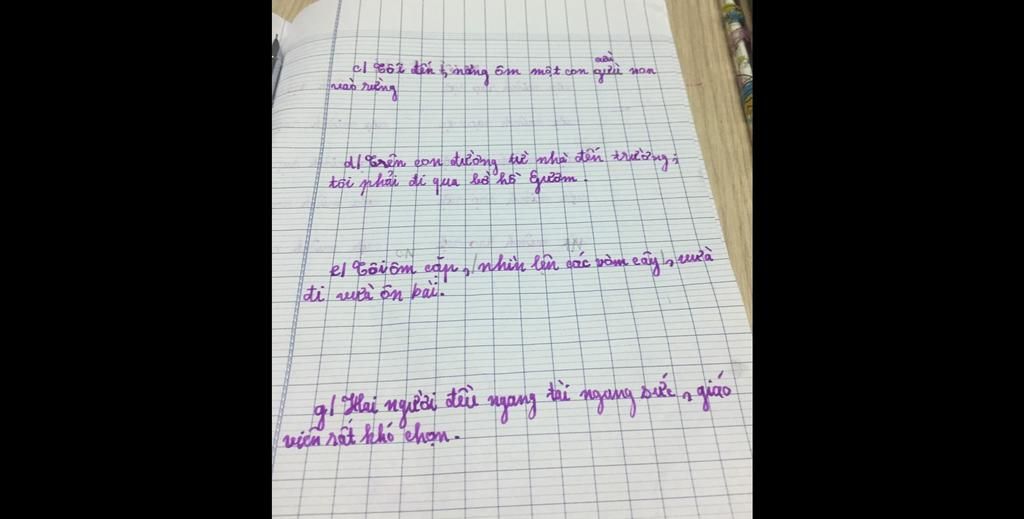 c/ Tối đến, nàng ôm một con gấu non
vào rừng
d/ Trên con đường từ nhà đến trường,
tôi phải đi qua bờ hồ Gươm.
e/ Tôi ôm cặp, / nhìn lên các vòm cây /, vừa
đi vừa ôn bài.
g/ Hai người đều ngang tài ngang sức, giáo
viên rất khó chọn.